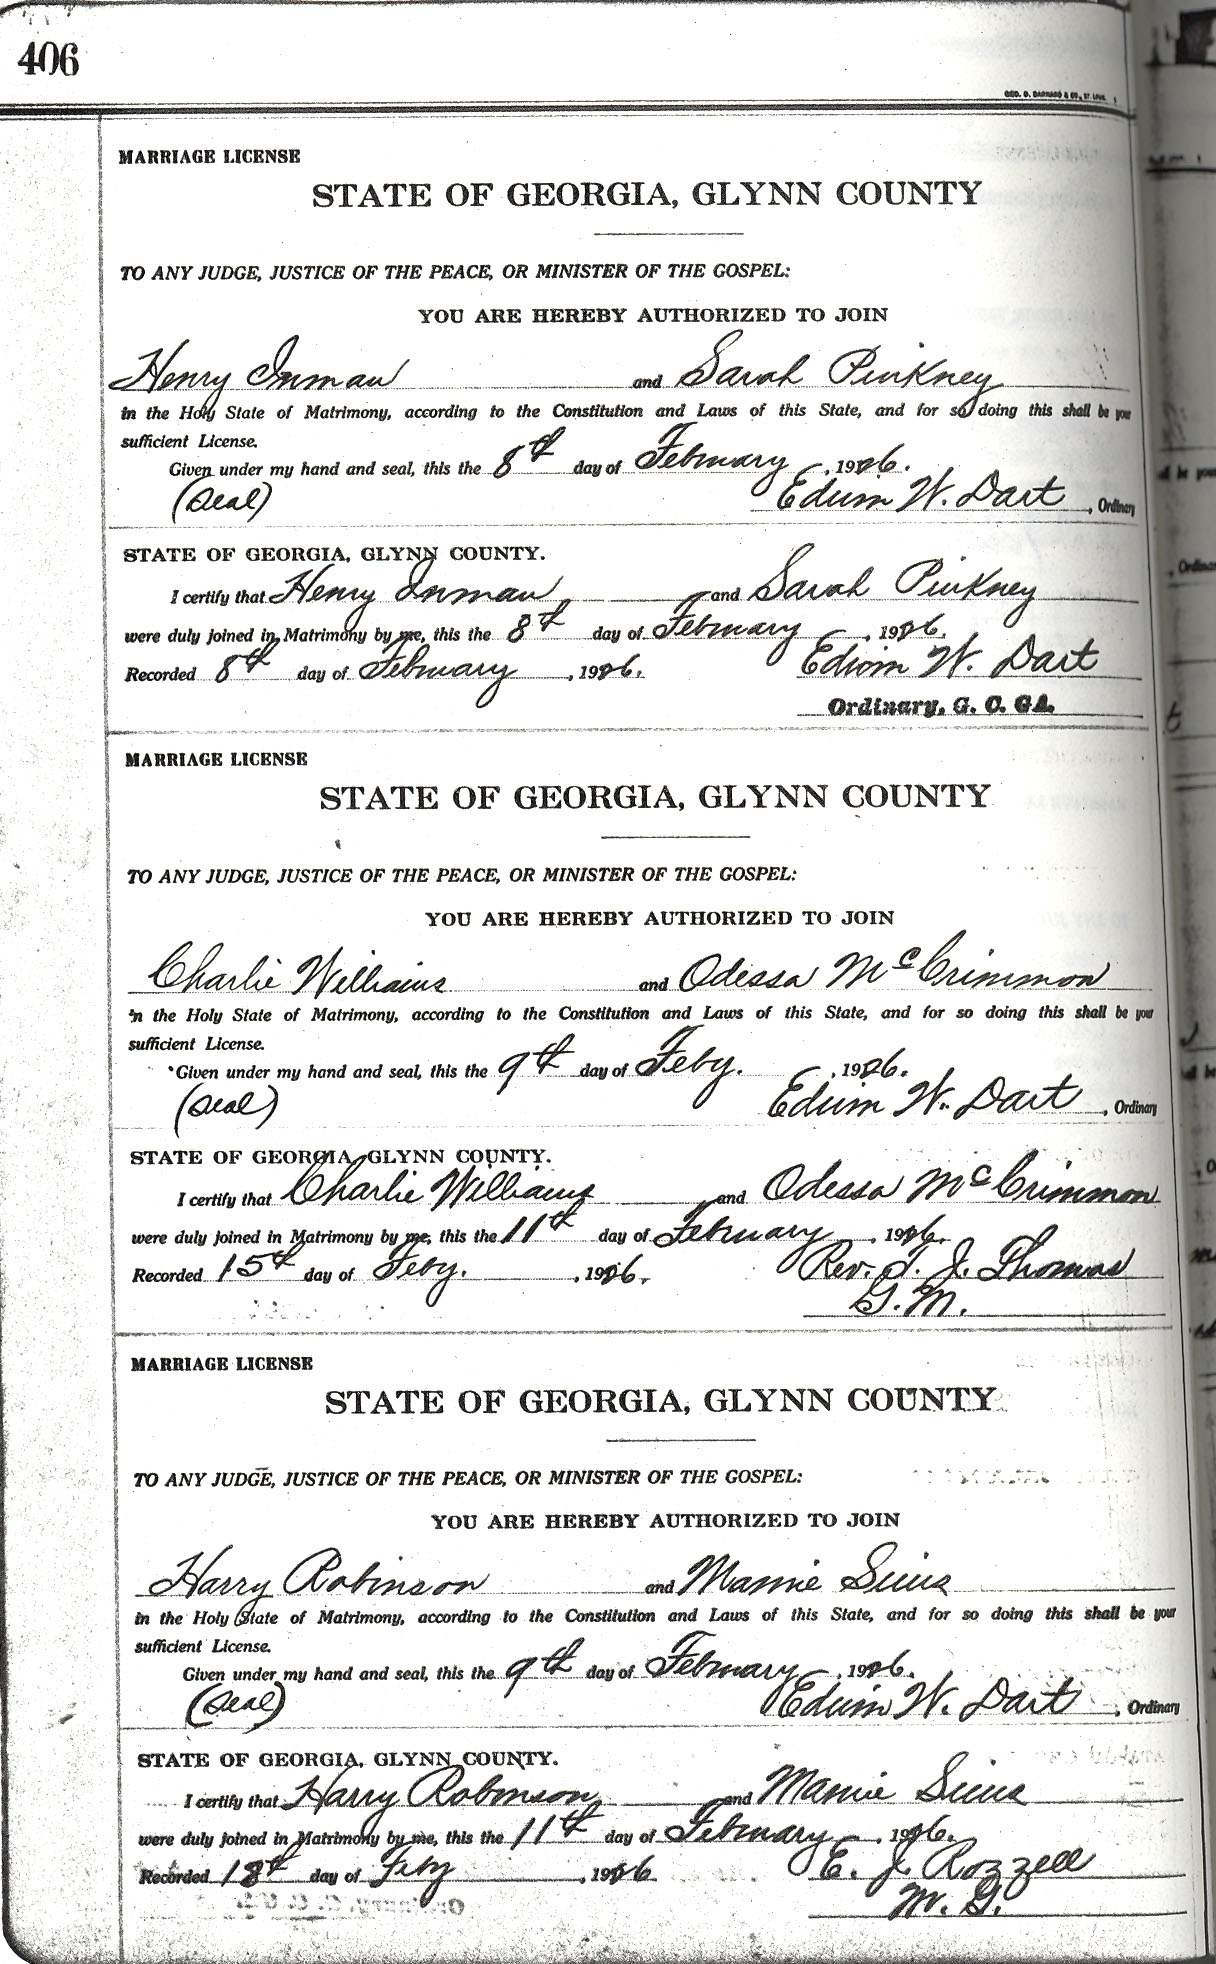 406
GEO. D. BARNARD & CO., ST. LOUIS
MARRIAGE LICENSE
STATE OF GEORGIA, GLYNN COUNTY
TO ANY JUDGE, JUSTICE OF THE PEACE, OR MINISTER OF THE GOSPEL:
YOU ARE HEREBY AUTHORIZED TO JOIN
Henry Inman and Sarah Pinkney
in the Holy State of Matrimony, according to the Constitution and Laws of this State, and for so doing this shall be your
sufficient License.
Given under my hand and seal, this the 8th day of February, 1926.
(Seal) Edwin W. Dart, Ordinary
STATE OF GEORGIA, GLYNN COUNTY.
I certify that Henry Inman and Sarah Pinkney
were duly joined in Matrimony by me, this the 8th day of February, 1926.
Recorded 8th day of February, 1926. Edwin W. Dart
Ordinary, G. C. GA.
MARRIAGE LICENSE
STATE OF GEORGIA, GLYNN COUNTY
TO ANY JUDGE, JUSTICE OF THE PEACE, OR MINISTER OF THE GOSPEL:
YOU ARE HEREBY AUTHORIZED TO JOIN
Charlie Williams and Odessa McCrimmon
in the Holy State of Matrimony, according to the Constitution and Laws of this State, and for so doing this shall be your
sufficient License.
Given under my hand and seal, this the 9th day of Feby., 1926.
(Seal) Edwin W. Dart, Ordinary
STATE OF GEORGIA, GLYNN COUNTY.
I certify that Charlie Williams and Odessa McCrimmon
were duly joined in Matrimony by me, this the 11th day of February, 1926.
Recorded 15th day of Feby., 1926. Rev. T. J. Thomas
G. M.
MARRIAGE LICENSE
STATE OF GEORGIA, GLYNN COUNTY
TO ANY JUDGE, JUSTICE OF THE PEACE, OR MINISTER OF THE GOSPEL:
YOU ARE HEREBY AUTHORIZED TO JOIN
Harry Robinson and Mamie Sims
in the Holy State of Matrimony, according to the Constitution and Laws of this State, and for so doing this shall be your
sufficient License.
Given under my hand and seal, this the 9th day of February, 1926.
(Seal) Edwin W. Dart, Ordinary
STATE OF GEORGIA, GLYNN COUNTY.
I certify that Harry Robinson and Mamie Sims
were duly joined in Matrimony by me, this the 11th day of February, 1926.
Recorded 18th day of Feby, 1926 E. J. Rozzell
M. G.